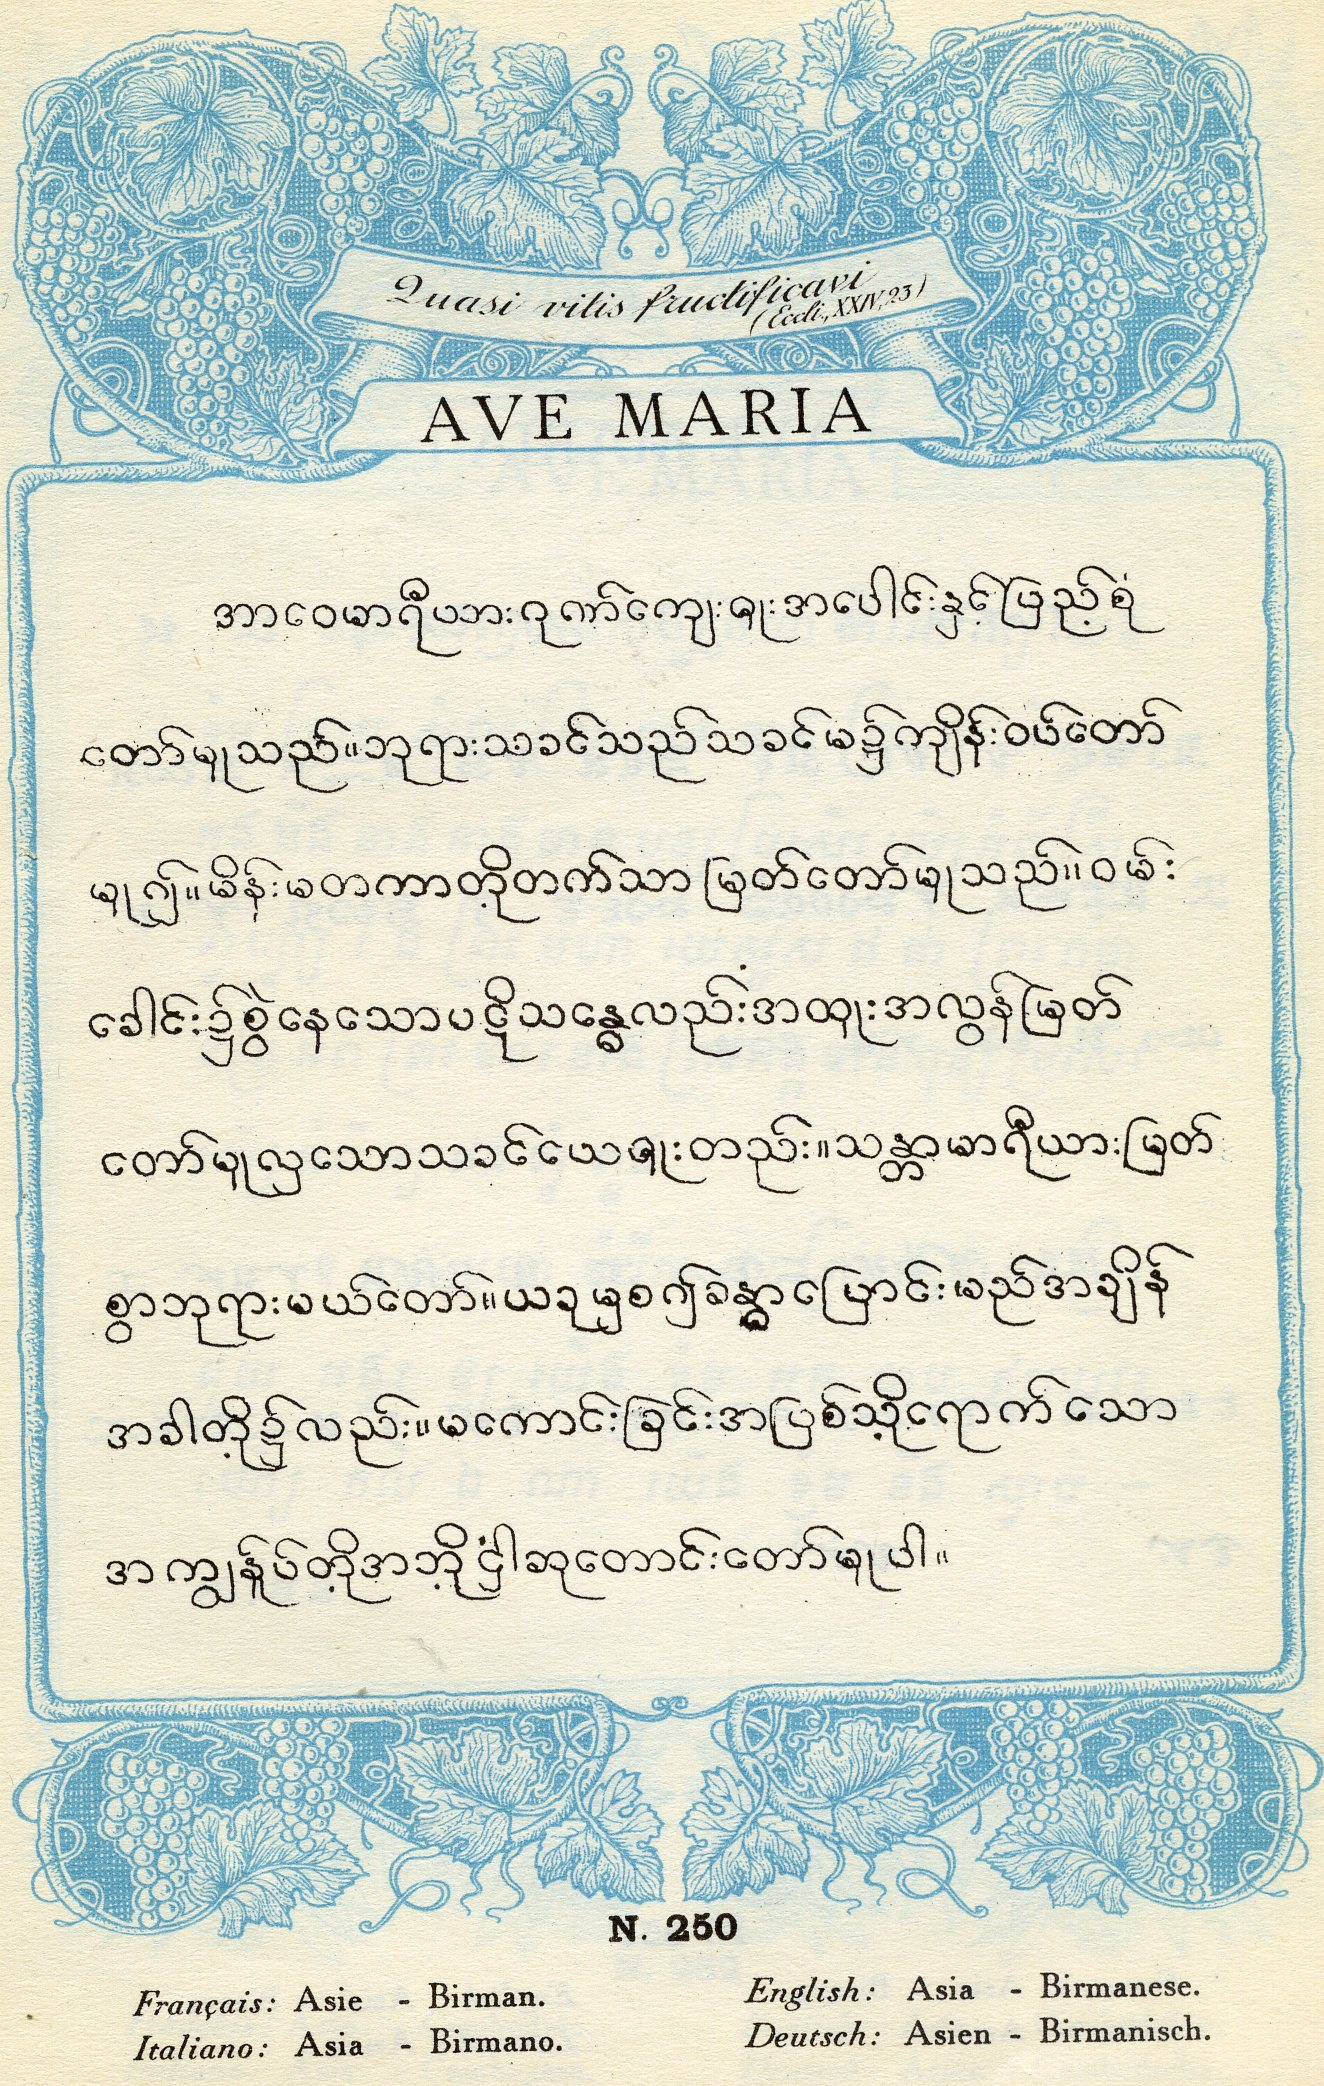 Quasi vitis fructificavi
(Eccli., XXIV, 23)
AVE MARIA
အာဝေမာရီယား ဂုဏ်ကျေးဇူးအပေါင်းနှင့်ပြည့်စုံ
တော်မူသည်။ဘုရားသခင်သည်သခင်မ၌ကျိန်းဝပ်တော်
မူ၍။မိန်းမတကာတို့ထက်သာမြတ်တော်မူသည်။ဝမ်း
ခေါင်း၌စွဲနေသောပဋိသန္ဓေလည်းအထူးအလွန်မြတ်
တော်မူလှသောသခင်ယေဇူးတည်း။သန္တာမာရီယားမြတ်
စွာဘုရားမယ်တော်။ယခုမှစ၍ခန္ဓာပြောင်းမည်အချိန်
အခါတို့၌လည်း။မကောင်းခြင်းအပြစ်သို့ရောက်သော
အကျွန်ုပ်တို့အဘို့ငှါဆုတောင်းတော်မူပါ။
N. 250
Français: Asie - Birman.
Italiano: Asia - Birmano.
English: Asia - Birmanese.
Deutsch: Asien - Birmanisch.